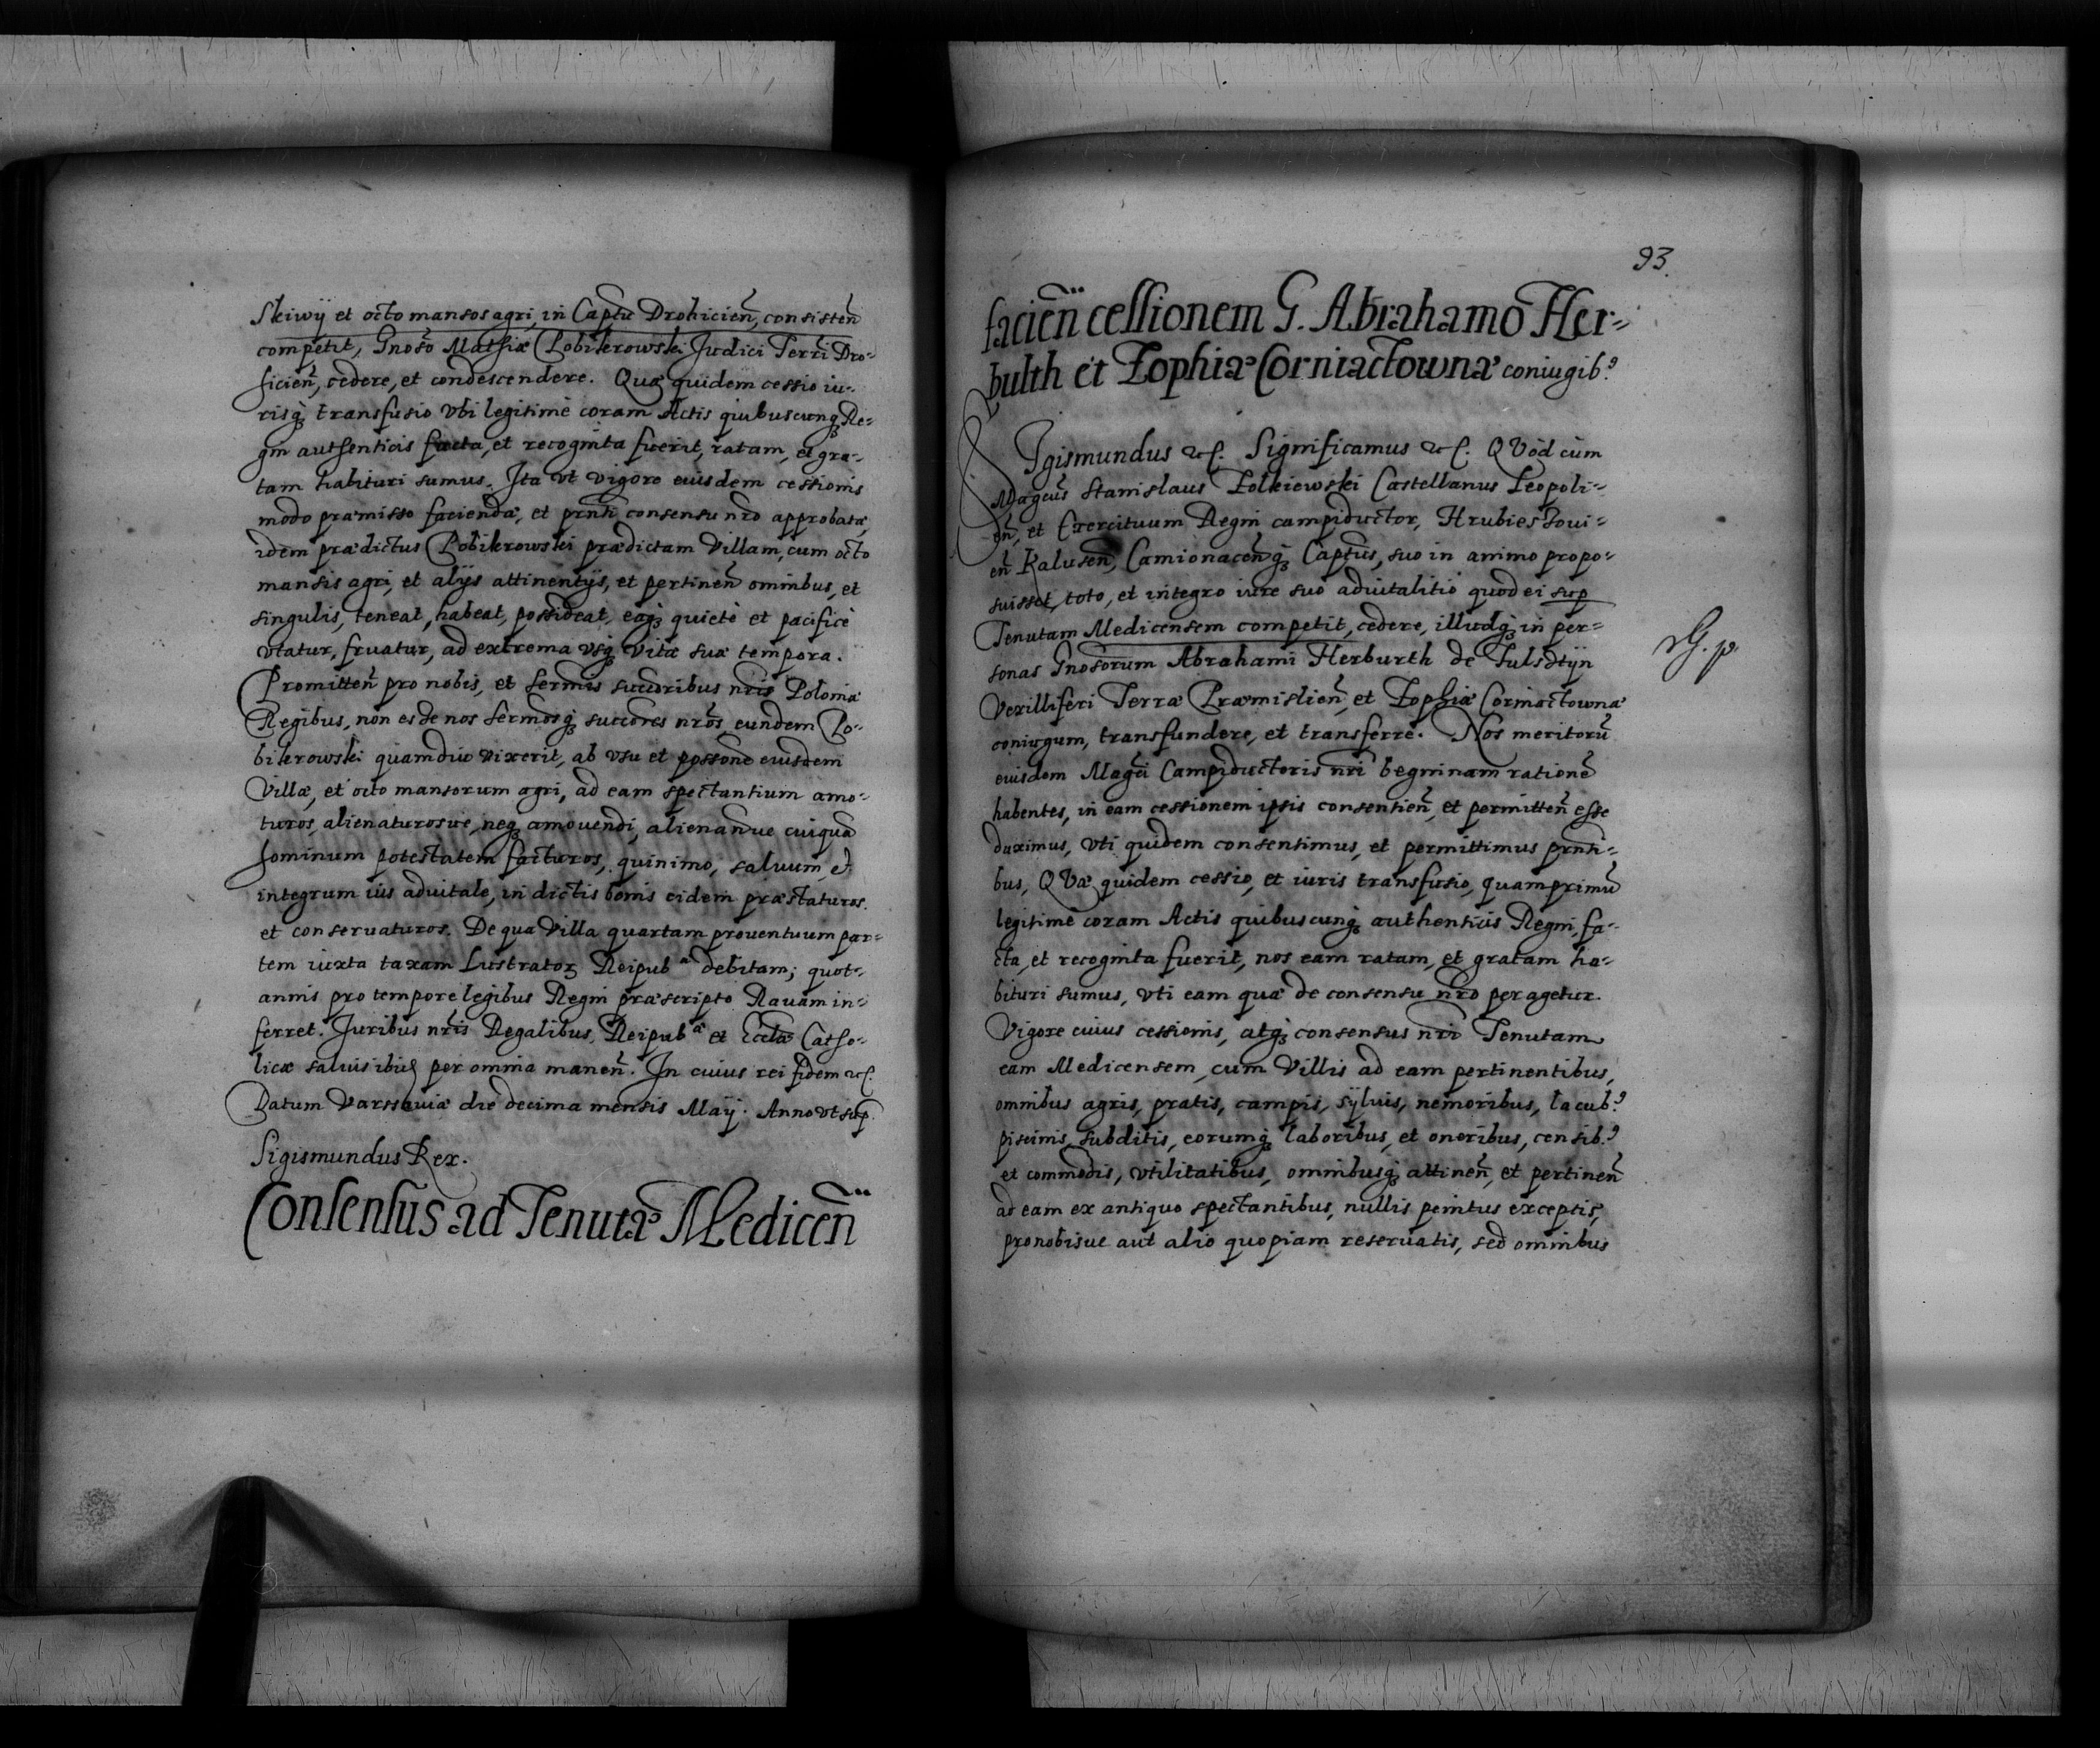 Skiwÿ et octo mansos agri, in Captu Drohicien̄, consisten̄
competit, Gnoso Mathiæ Pobikrowski Judici Terri Dro-
hicien̄, cedere, et condescendere. Quæ quidem cessio iu-
risq₃ transfusio vbi legitimè coram Actis quibuscunq₃ Re-
gni authenticis facta, et recognita fuerit, ratam, et gra-
tam habituri sumus. Ita vt vigore eiusdem cessionis
modo præmisso faciendæ, et prnti consensu nro approbatæ,
idem prædictus Pobikrowski prædictam Villam, cum octo
mansis agri, et alijs attinentijs, et pertinen̄ omnibus, et
singulis, teneat, habeat, possideat, eaq₃ quietè et pacificè
vtatur, fruatur, ad extrema vsq₃ vitæ suæ tempora.
Promitten̄ pro nobis, et Sermis succoribus nris Poloniæ
Regibus, non esse nos Sermosq₃ succores nros, eundem Po-
bikrowski quamdiu vixerit, ab vsu et possone eiusdem
Villæ, et octo mansorum agri, ad eam spectantium amo-
turos, alienaturosue, neq₃ amouendi, alienandiue cuiquā
hominum potestatem facturos, quinimo, saluum, et
integrum ius aduitale, in dictis bonis eidem præstaturos.
et conseruaturos. De qua Villa quartam prouentuum par-
tem iuxta taxam Lustratorꝫ Reipubᵃ debitam; quot-
annis pro tempore legibus Regni præscripto Rauam in-
ferret. Juribus nris Regalibus, Reipubᵃ et Ecclæ Catho-
licæ saluis ibid per omnia manen̄. In cuius rei fidem &c.
Datum Varssauiæ die decima mensis Maij. Anno vt sup.
Sigismundus Rex.
Consensus ad Tenutæ Medicen̄
93.
facien̄ cessionem G. Abrahamo Her-
bulth et Zophiæ Corniactownæ coniugib⁹.
SIgismundus &c. Significamus &c. QVod cum
Magcus Stanislaus Zolkiewski Castellanus Leopoli-
en̄, et Exercituum Regni campiductor, Hrubieszoui-
en̄ Kalusen̄, Camionacen̄q₃ Captus, suo in animo propo-
suisset, toto, et integro iure suo aduitalitio quod ei sup
Tenutam Medicensem competit, cedere, illudq₃ in per-
sonas Gnosorum Abrahami Herburth de Fulsdtÿn
Vexilliferi Terræ Præmislien̄, et Zophiæ Corniactownæ
coniugum, transfundere, et transferre. Nos meritorū
eiusdem Magci Campiductoris nri begninam rationē
habentes, in eam cessionem ipsis consentien̄, et permitten̄ esse
duximus, vti quidem consentimus, et permittimus prnti-
bus, QVæ quidem cessio, et iuris transfusio, quamprimū
legitimè coram Actis quibuscunq₃ authenticis Regni, fa-
cta, et recognita fuerit, nos eam ratam, et gratam ha-
bituri sumus, vti eam quæ de consensu nro peragetur.
Vigore cuius cessionis, atq₃ consensus nri Tenutam
eam Medicensem, cum Villis ad eam pertinentibus,
omnibus agris, pratis, campis, sÿluis, nemoribus, lacub⁹.
piscinis, subditis, eorumq₃ laboribus, et oneribus, censib⁹.
et commodis, vtilitatibus, omnibusq₃ attinen̄, et pertinen̄
ad eam ex antiquo spectantibus, nullis penitus exceptis,
pro nobisue aut alio quopiam reseruatis, sed omnibus